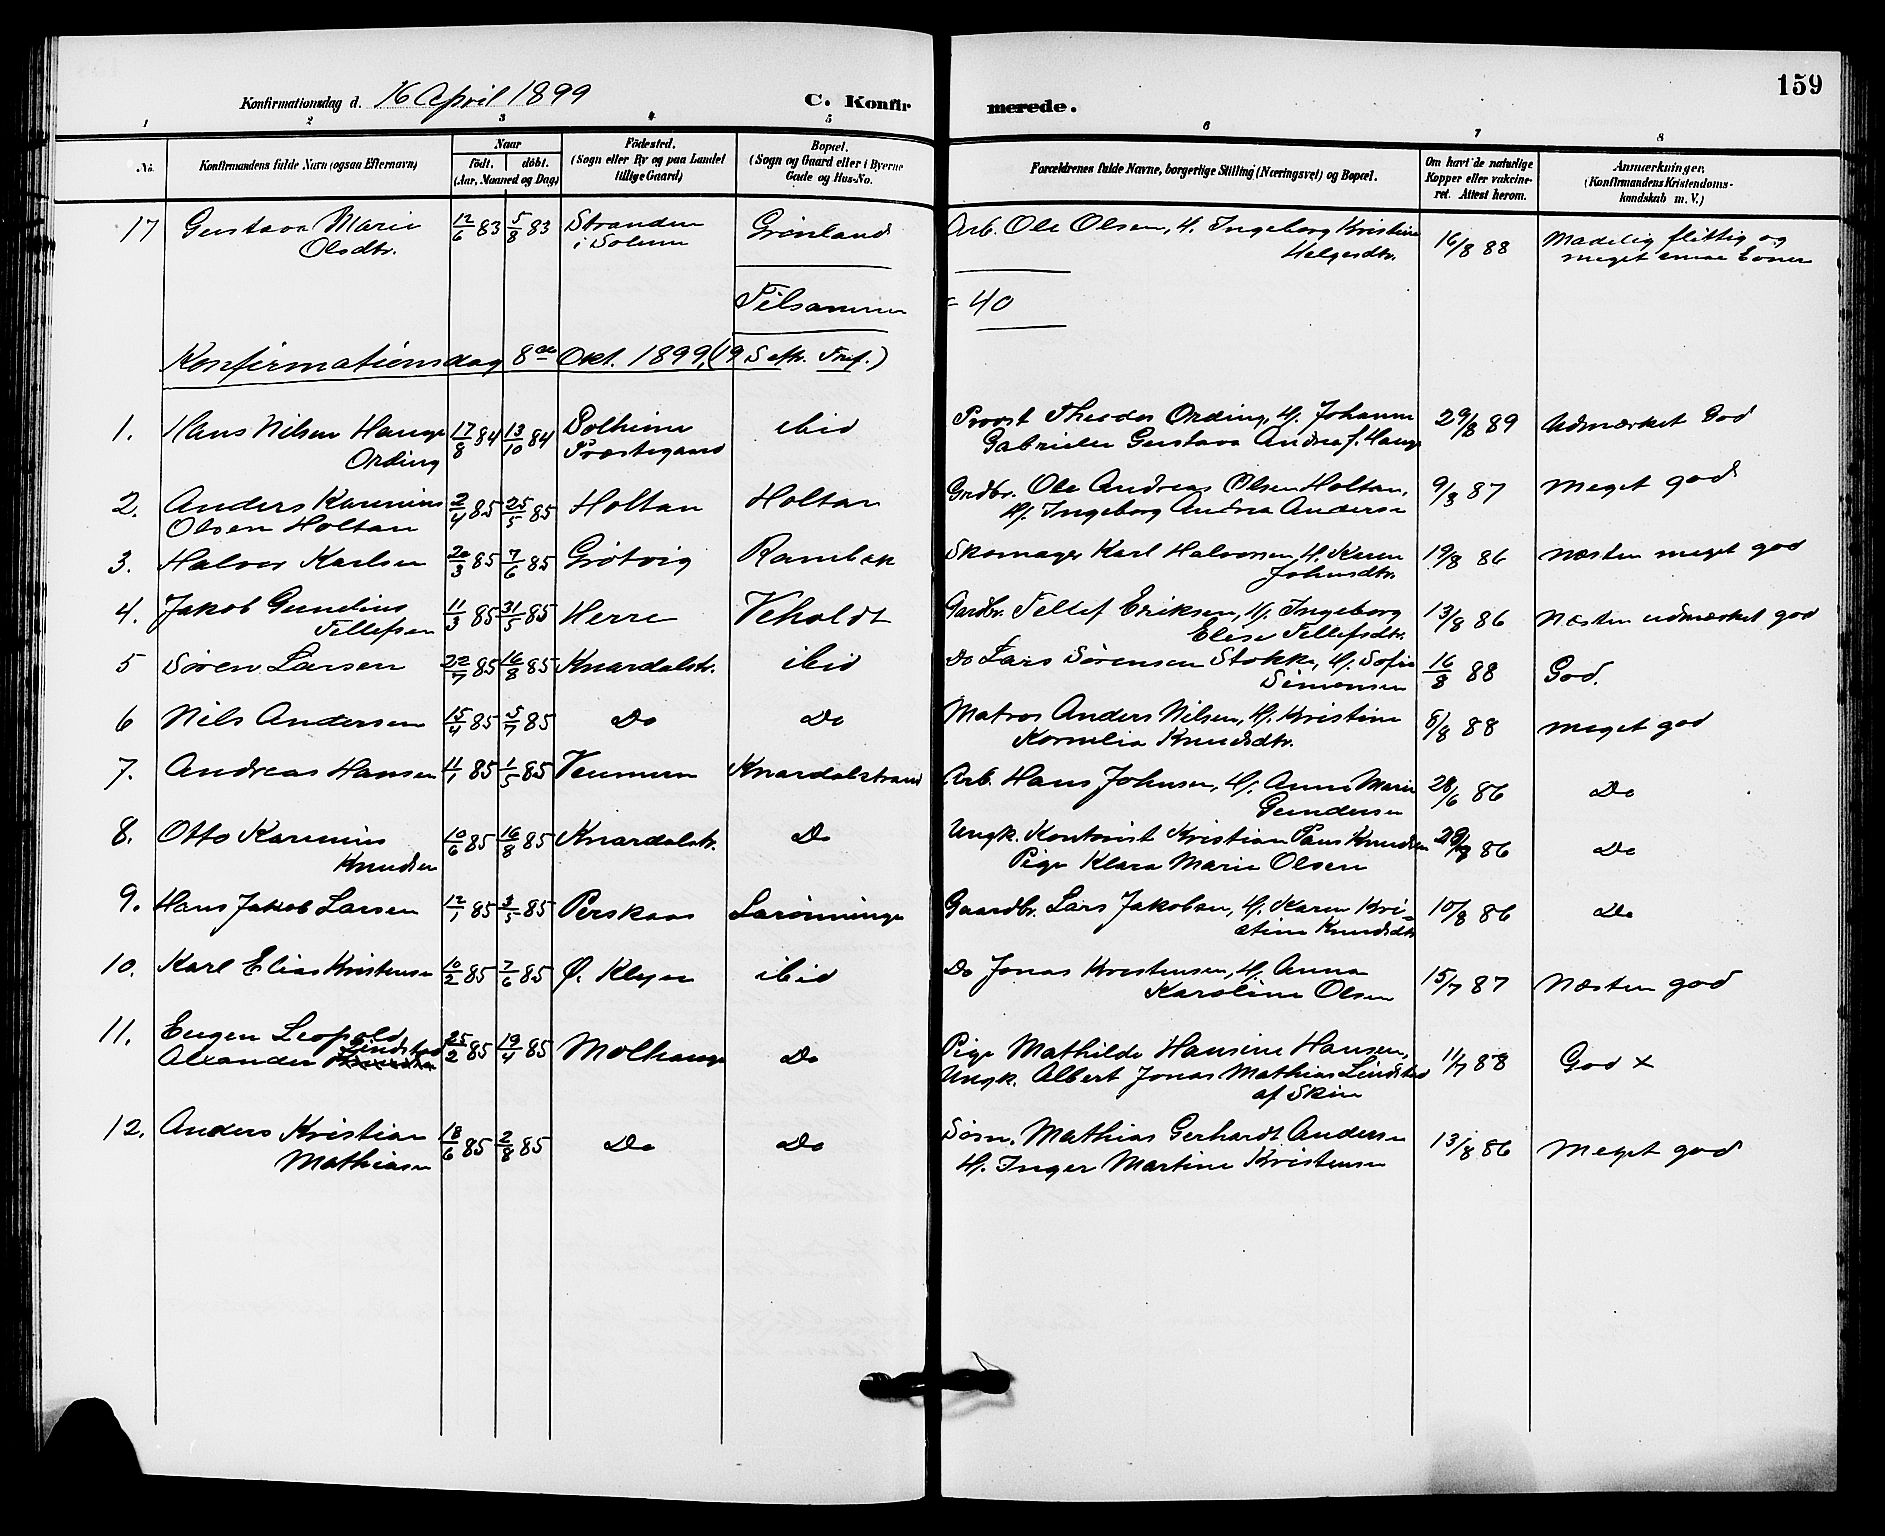 159
Konfirmationsdag d. 16 April 1899 C. Konfir merede.
1 2 3 4 5 6 7 8
No. Konfirmandens fulde Navn (ogsaa Efternavn) Naar født. døbt. (Aar, Maaned og Dag) Fødested. (Sogn eller By og paa Landet tillige Gaard) Bopæl. (Sogn og Gaard eller i Byerne Gade og Hus-No. Forældrenes fulde Navne, borgerlige Stilling (Næringsvei) og Bopæl. Om havt de naturlige Kopper eller vakcineret. Attest herom. Anmærkninger. (Konfirmandens Kristendomskundskab m. V.)
17 Gustava Marie Olsdtr. 12/6 83 5/8 83 Stranden i Solum Grønland Arb. Ole Olsen, H. Ingeborg Kristine Helgesdtr. 16/8 88 Madelig flittig og meget Evner
Tilsammen = 40
Konfirmationsdag 8de Okt. 1899, (19 S eft. Tref.)
1. Hans Nilsen Hauge Ording 17/8 84 13/10 84 Solheim Præstegaard ibid Provst Theodor Ording, H. Johanne Gabrielle Gustava Andrea f. Hauge 29/8 89 Udmærket God
2. Anders Karenius Olsen Holtan 2/4 85 25/5 85 Holtan Holtan Grdbr. Ole Andreas Olsen Holtan, H. Ingeborg Andrea Andersen 9/3 87 Meget god
3. Halvor Karlsen 20/3 85 7/6 85 Grøtvig Rambæk Skomager Karl Halvorsen, H. Karen Johnsdtr. 19/8 86 Næsten meget god
4. Jakob Gunelius Tellefsen 11/3 85 31/5 85 Herre Veholdt Gaardbr. Tellef Eriksen, H. Ingeborg Elise Tellefsdtr. 13/8 86 Næsten udmærket god
5 Søren Larsen 22/7 85 16/8 85 Knardalstr. ibid Do Lars Sørensen Stokke, H. Sofie Simonsen 16/8 88 God.
6 Nils Andersen 15/4 85 5/7 85 Do Do Matros Anders Nilsen, H. Kristine Kornelia Knudsdtr. 8/8 88 meget god
7. Andreas Hansen 11/1 85 1/5 85 Venmern Knardalstrand Arb. Hans Johnsen, H. Anne Marie Gundersen 28/6 86 Do
8. Otto Karenius Knudsen 10/6 85 16/8 85 Knardalstr. Do Ungk. Kontorist Kristian Paus Knudsen Pige Klara Marie Olsen 86 Do
9. Hans Jakob Larsen 12/1 85 3/5 85 Perskaas Sarønningen Gaardbr. Lars Jakobsen, H. Karen Kristine Knudsdtr 10/8 86 Do
10. Karl Elias Kristensen 10/2 85 7/6 85 Ø. Klyve ibid Do Jonas Kristensen, H. Anna Karoline Olsen 15/7 87 Næsten god
11. Eugen Leopold Alexander Lindstad 25/2 85 19/4 85 Molhaugen Do Pige Mathilde Hansine Hansen, Ungk. Albert Jonas Mathias Lindstad af Skien 11/7 88 God x
12. Anders Kristian Mathiasen 18/6 85 2/8 85 Do Do Søm. Mathias Gerhardt Andersen H. Inger Martine Kristensen 13/8 86 Meget god